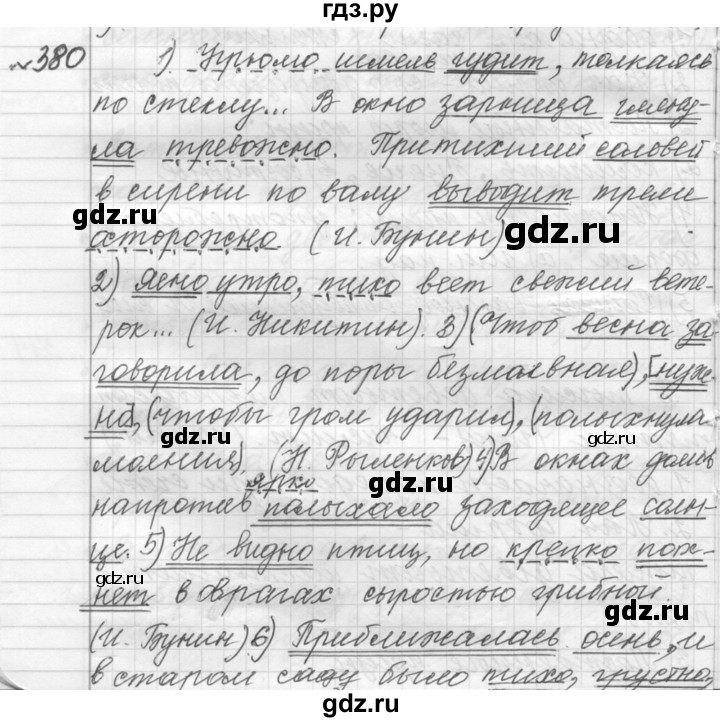 гдз.ру
№380 1) Угрюмо шмель гудит, толкаясь
по стеклу... В окно зарница гляну-
ла тревожно. Притихший соловей
в сирени по валу выводит трели
осторожно. (И. Бунин)
2) Ясно утро, тихо веет свежий вете-
рок... (И. Никитин). 3) (Чтоб весна за-
говорила, до поры безмолвная), [нуж-
но], (чтобы гром ударил), (полыхнула
молния). (Н. Рыленков) 4) В окнах домов
ярко
напротив полыхало заходящее солн-
це. 5) Не видно птиц, но крепко пах-
нет в оврагах сыростью грибной.
(И. Бунин) 6) Приближалась осень, и
в старом саду было тихо, грустно,
gdz.ru
gdz.ru
gdz.ru
gdz.ru
gdz.ru
gdz.ru
gdz.ru
gdz.ru
gdz.ru
gdz.ru
gdz.ru
gdz.ru